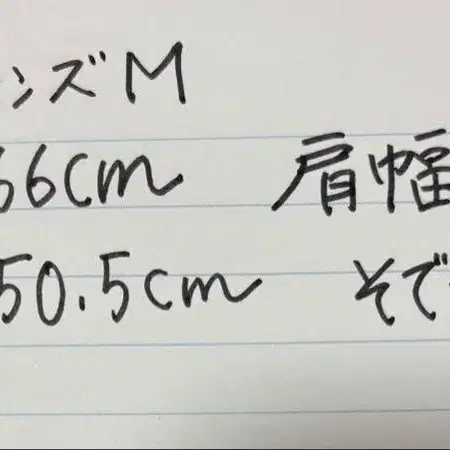 ンズM
66cm 肩幅
50.5cm そで